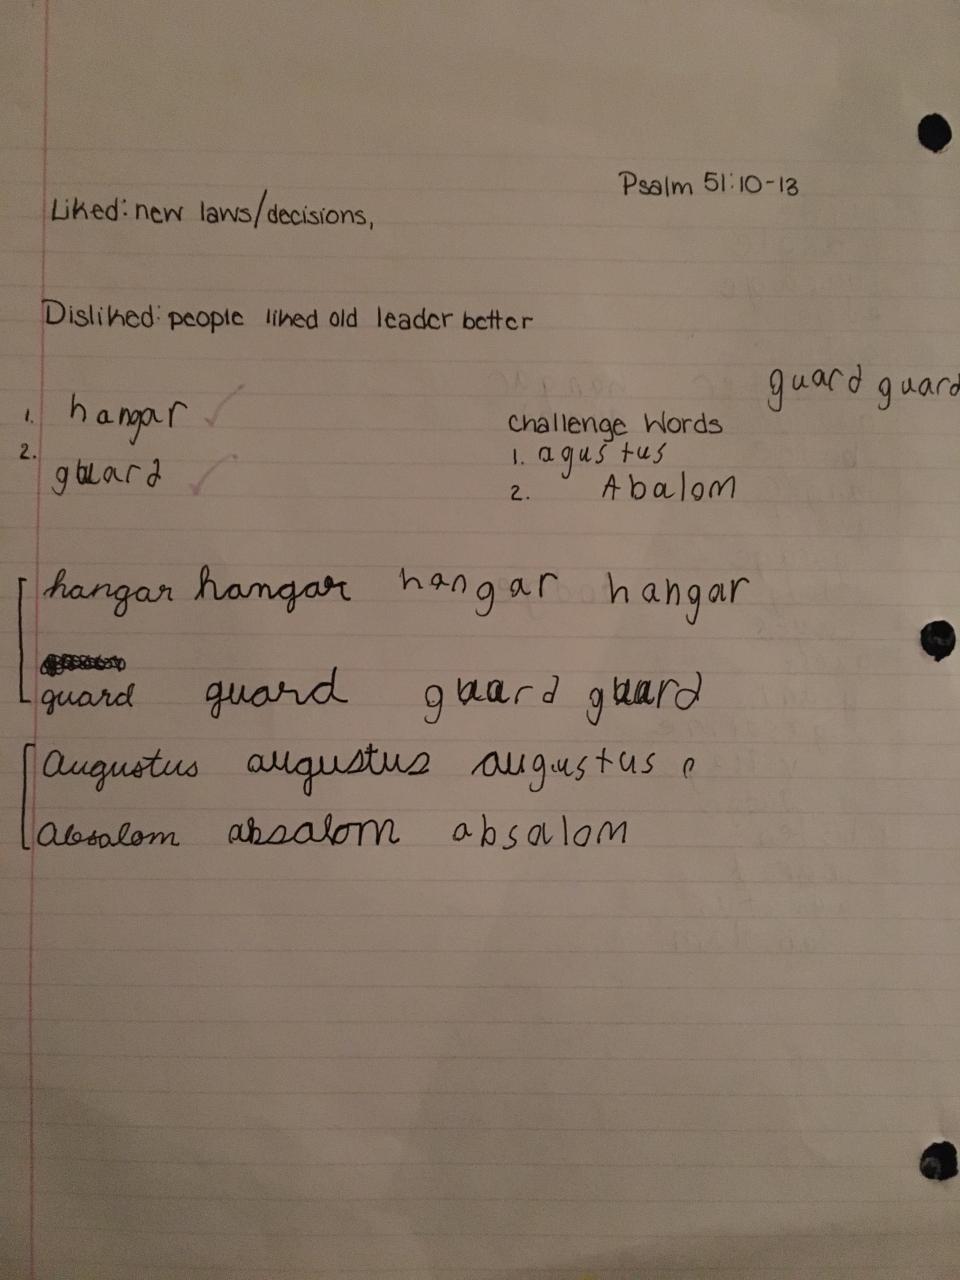 Psalm 51:10-13
Liked: new laws/decisions,
Disliked: people liked old leader better
guard guard
1. hangar
Challenge Words
2. guard
1. agustus
2. Abalom
hangar hangar hangar hangar
guard guard guard guard
Augustus augustus augustus
Absalom absalom absalom